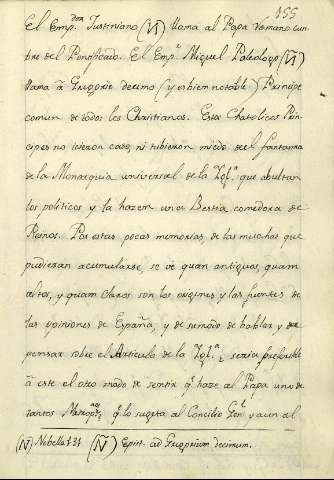 155
El Emp.dor Justiniano (N) llama al Papa Romano cum
bre del Pontificado. El Emp.r Miguel Paleologo (Ñ)
llama à Gregorio decimo (y es bien notable) Principe
comun de todos los Christianos. Estos Catholicos Prin
cipes no icieron caso, ni tubieron miedo del fantasma
de la Monarquia universal de la Igl.a que abultan
los politicos y la hazen una Bestia comedora de
Reinos. Por estas pocas memorias, de las muchas que
pudieran acumularse, se vè quan antiguos, quam
altos, y quam claros son los origines y las fuentes de
las opiniones de España, y de su modo de hablar y
pensar sobre el Articulo de la Igl.a serà preferible
à este el otro modo de sentir q.e haze al Papa uno de
tantos Metrop.nos q.e lo sugeta al Concilio Gen.l y aun al
(N) Nobella 131. (Ñ) Epist. ad Gregorium decimum.